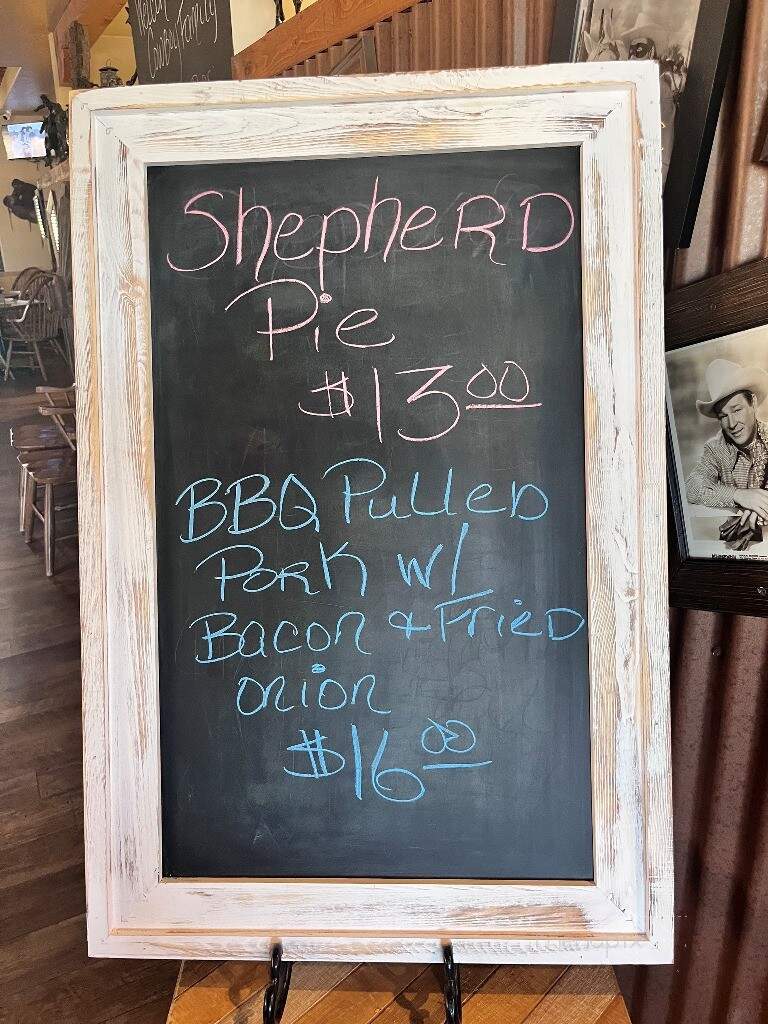 Cowboy Family
Shepherd
Pie
$13.00
BBQ Pulled
Pork w/
Bacon & Fried
onion
$16.00